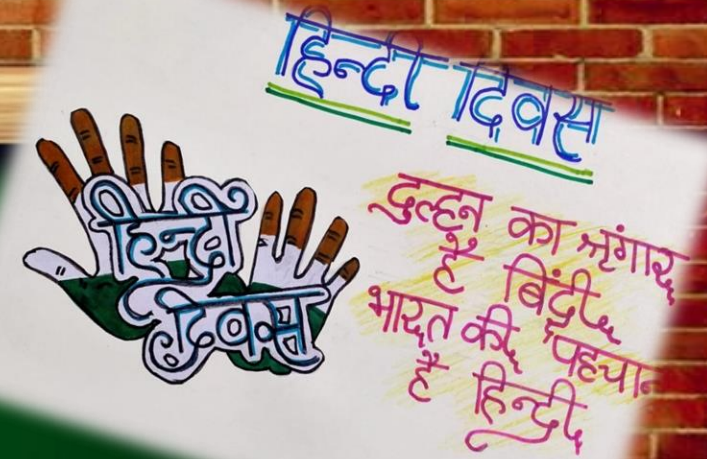 हिन्दी दिवस
हिन्दी
दिवस
दुल्हन का श्रृंगार
है बिंदी
भारत की पहचान
है हिन्दी